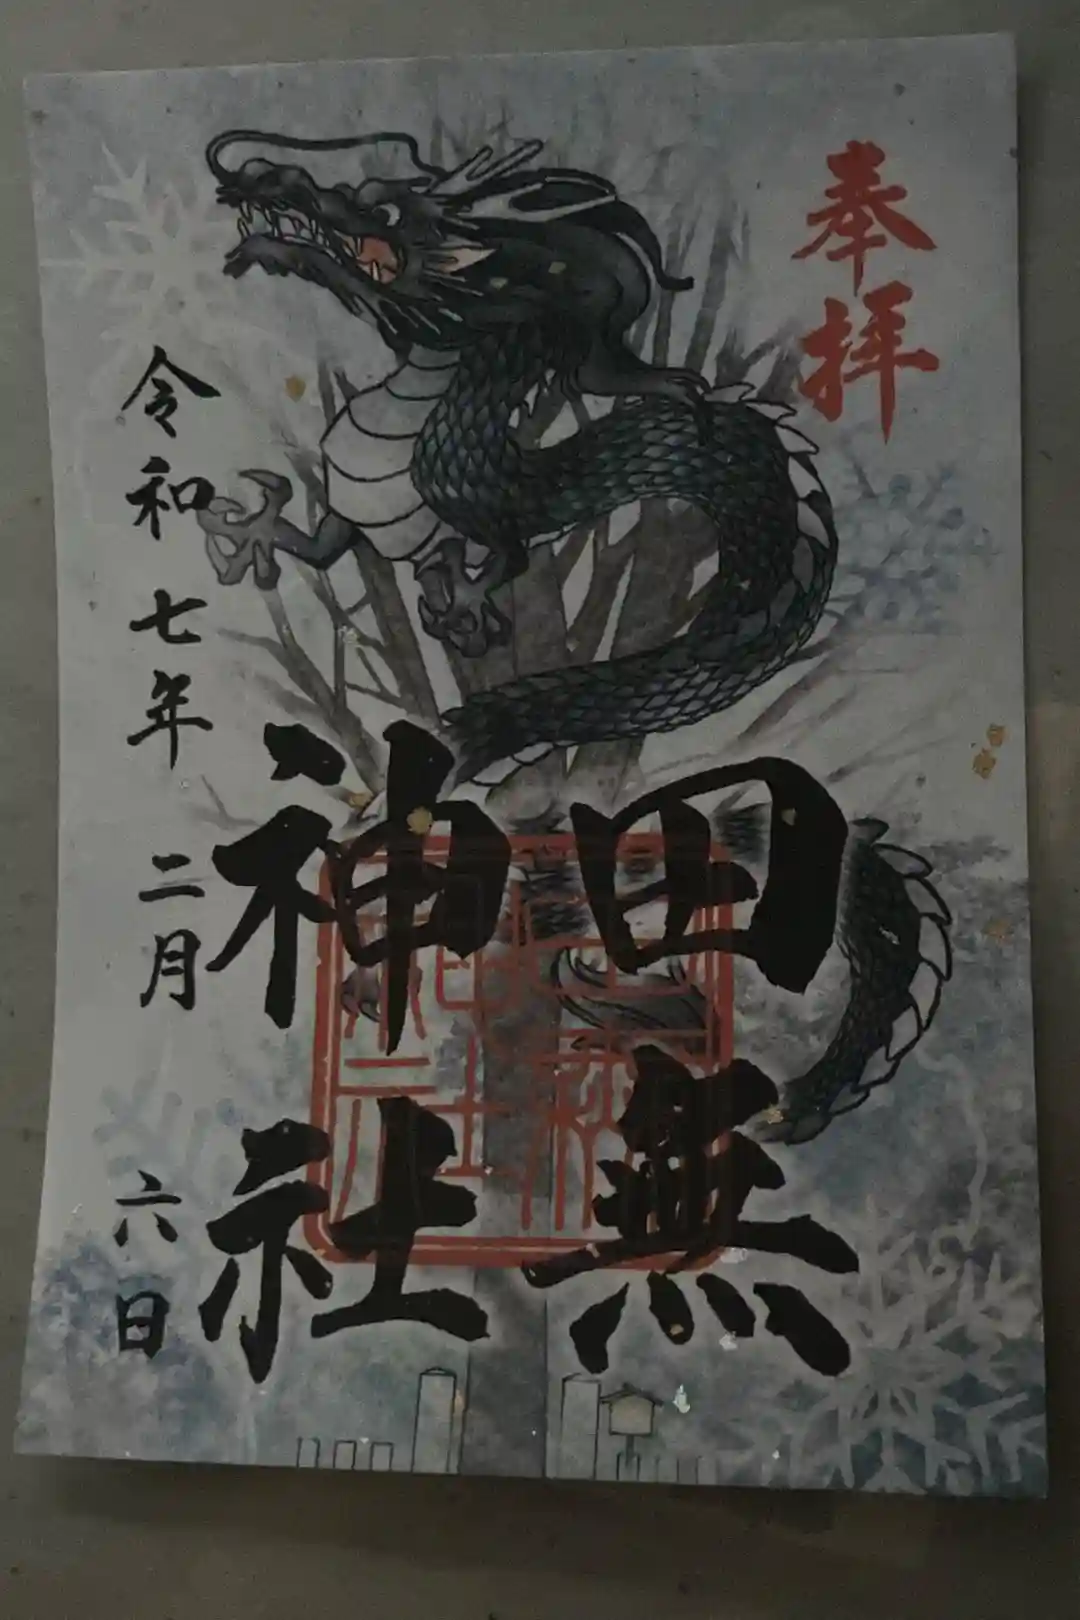 奉拝
田無
神社
令和七年二月六日